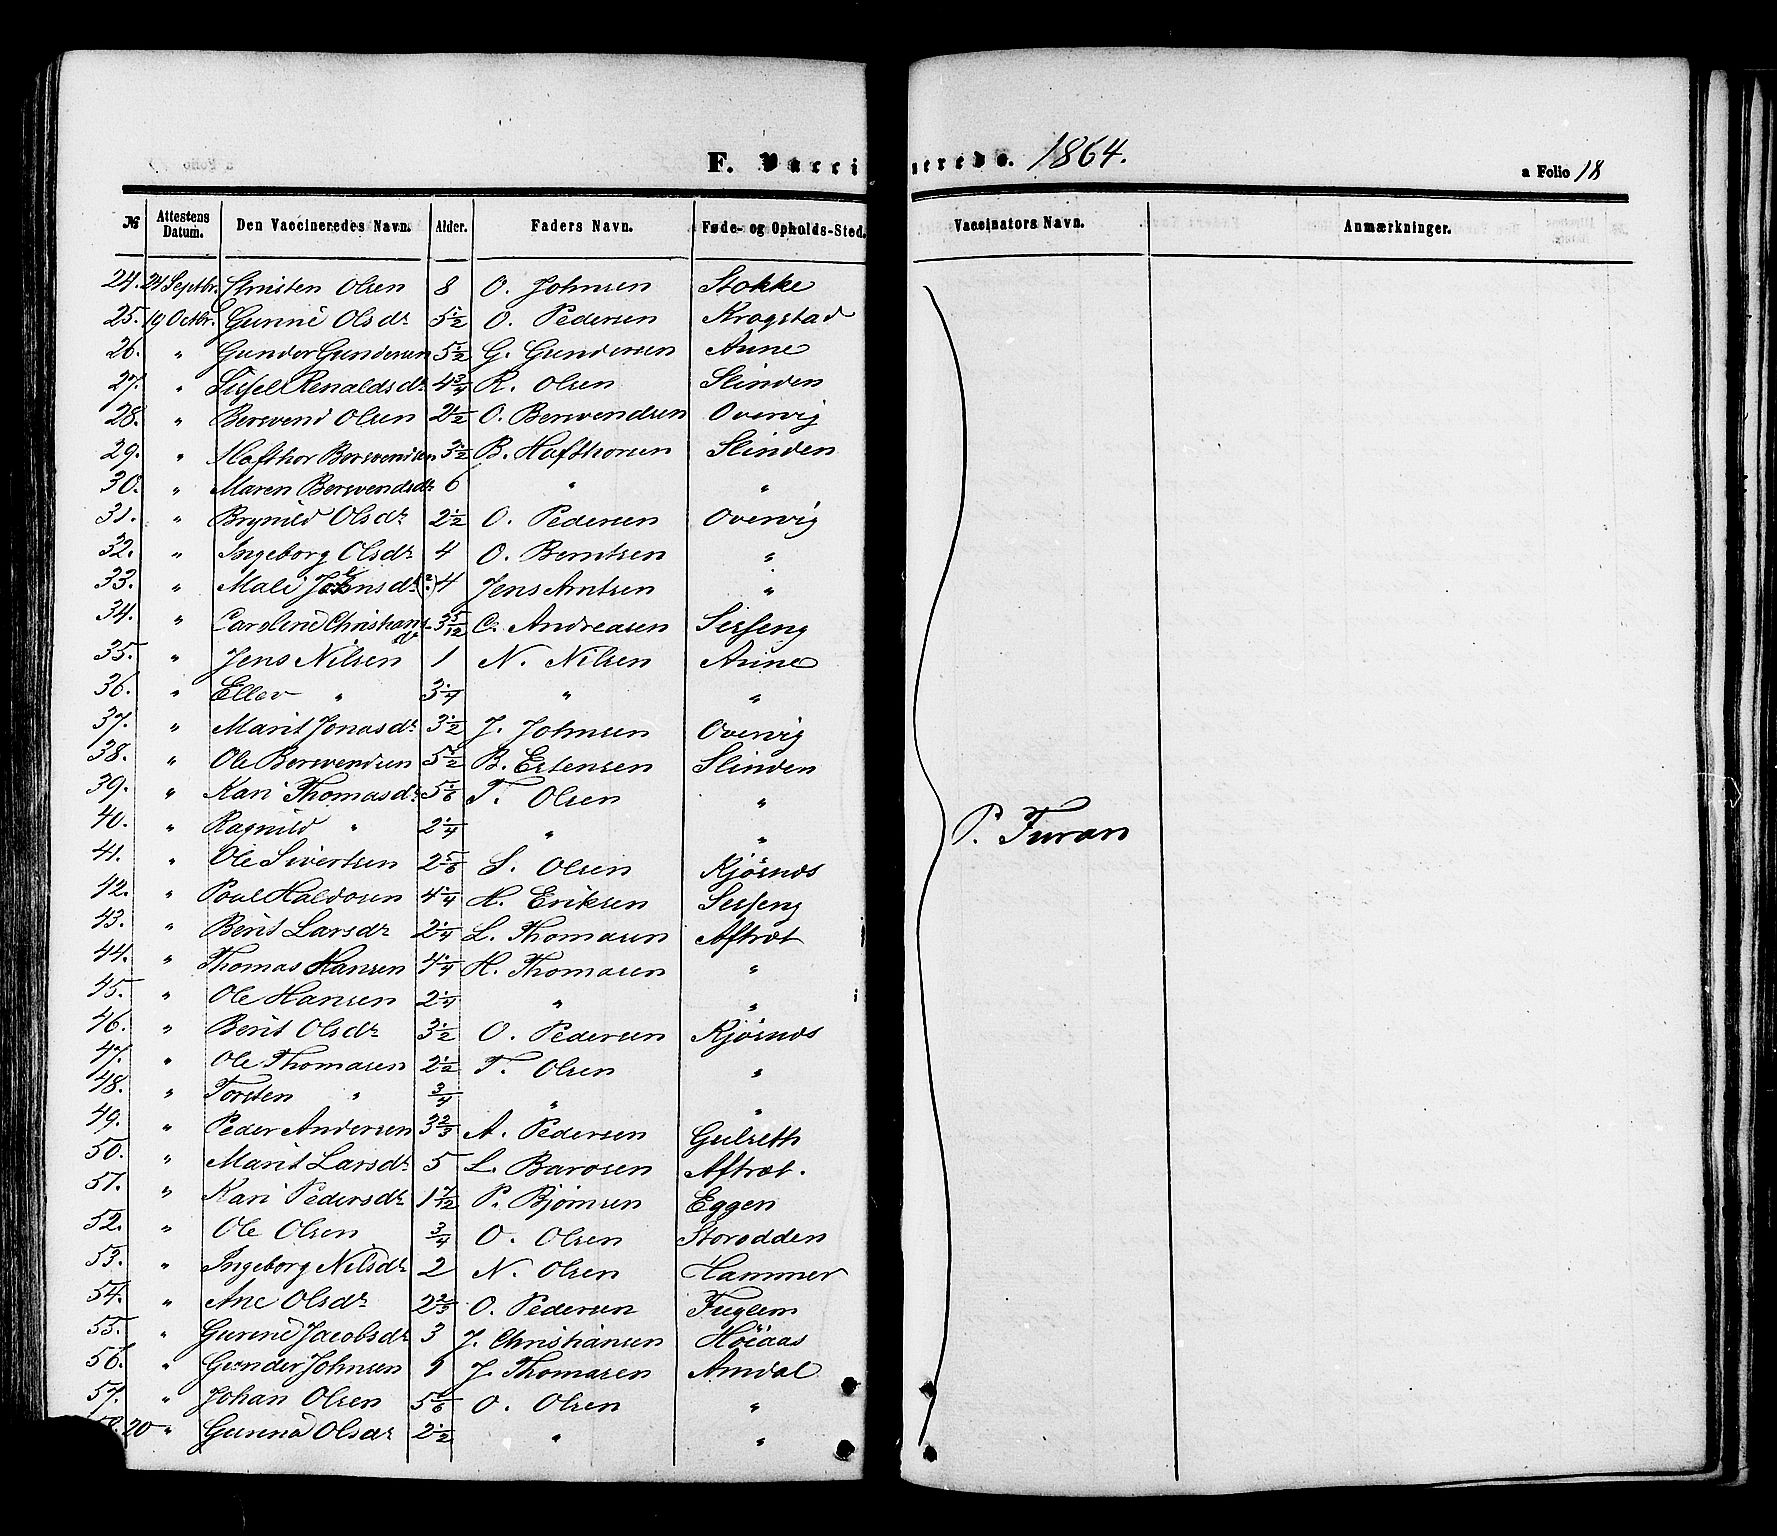 F. Vaccinerede. 1864.
a Folio 18
№ Attestens Datum. Den Vaccineredes Navn. Alder. Faders Navn. Føde- og Opholds-Sted. Vaccinators Navn. Anmærkninger.
24. 24 Septbr. Christen Olsen 8 O. Johnsen Stokke
25. 19 Octbr. Guruné Olsdr 5 1/2 O. Pedersen Krogstad
26. " Gunder Gundersen 5 1/2 G. Gundersen Aune
27. " Sissel Renaldsdr 4 3/4 R. Olsen Slinden
28. " Bersvend Olsen 2 1/2 O. Bersvendsen Overvig
29. " Hafthor Bersvendsen 3 1/2 B. Hafthorsen Slinden
30. " Maren Bersvendsdr 6 " "
31. " Brynild Olsdr 2 1/2 O. Pedersen Overvig
32. " Ingeborg Olsdr 4 O. Berntsen "
33. " Mali Jensdr (?) 4 Jens Arntsen "
34. " Caroline Christiansdr 3 5/12 C. Andreasen Sesseng
35. " Jens Nilsen 1 N. Nilsen Aune
36. " Ellev " 3 1/4 " "
37. " Marit Jonasdr 3 1/2 J. Johnsen Overvig
38. " Ole Bersvendsen 5 1/2 B. Estensen Slinden
39. " Kari Thomasdr 5 1/6 T. Olsen "
40. " Ragnild " 2 1/4 " "
41. " Ole Sivertsen 2 5/6 S. Olsen Kjøsnæs
42. " Poul Haldosen 4 1/4 H. Eriksen Sesseng
43. " Berit Larsdr 2 1/4 L. Thomasen Aftret
44. " Thomas Hansen 4 1/4 H. Thomasen "
45. " Ole Hansen 2 1/4 " "
46. " Berit Olsdr 3 1/2 O. Pedersen Kjøsnæs
47. " Ole Thomasen 2 1/2 T. Olsen "
48. " Torsten " 3/4 " "
49. " Peder Andersen 3 2/3 A. Pedersen Gulseth
50. " Marit Larsdr 5 L. Barosen Aftret.
51. " Kari Pedersdr 1 7/12 P. Bjørnsen Eggen
52. " Ole Olsen 3/4 O. Olsen Storodden
53. " Ingeborg Nilsdr 2 N. Olsen Hammer
54. " Ane Olsdr 2 2/3 O. Pedersen Fuglem
55. " Guruné Jacobsdr 3 J. Christiansen Høiaas
56. " Gunder Johnsen 9 J. Thomasen Amdal
57. " Johan Olsen 5 1/6 O. Olsen "
58. 20 " Guruna Olsdr 2 1/2 " "
P. Furan